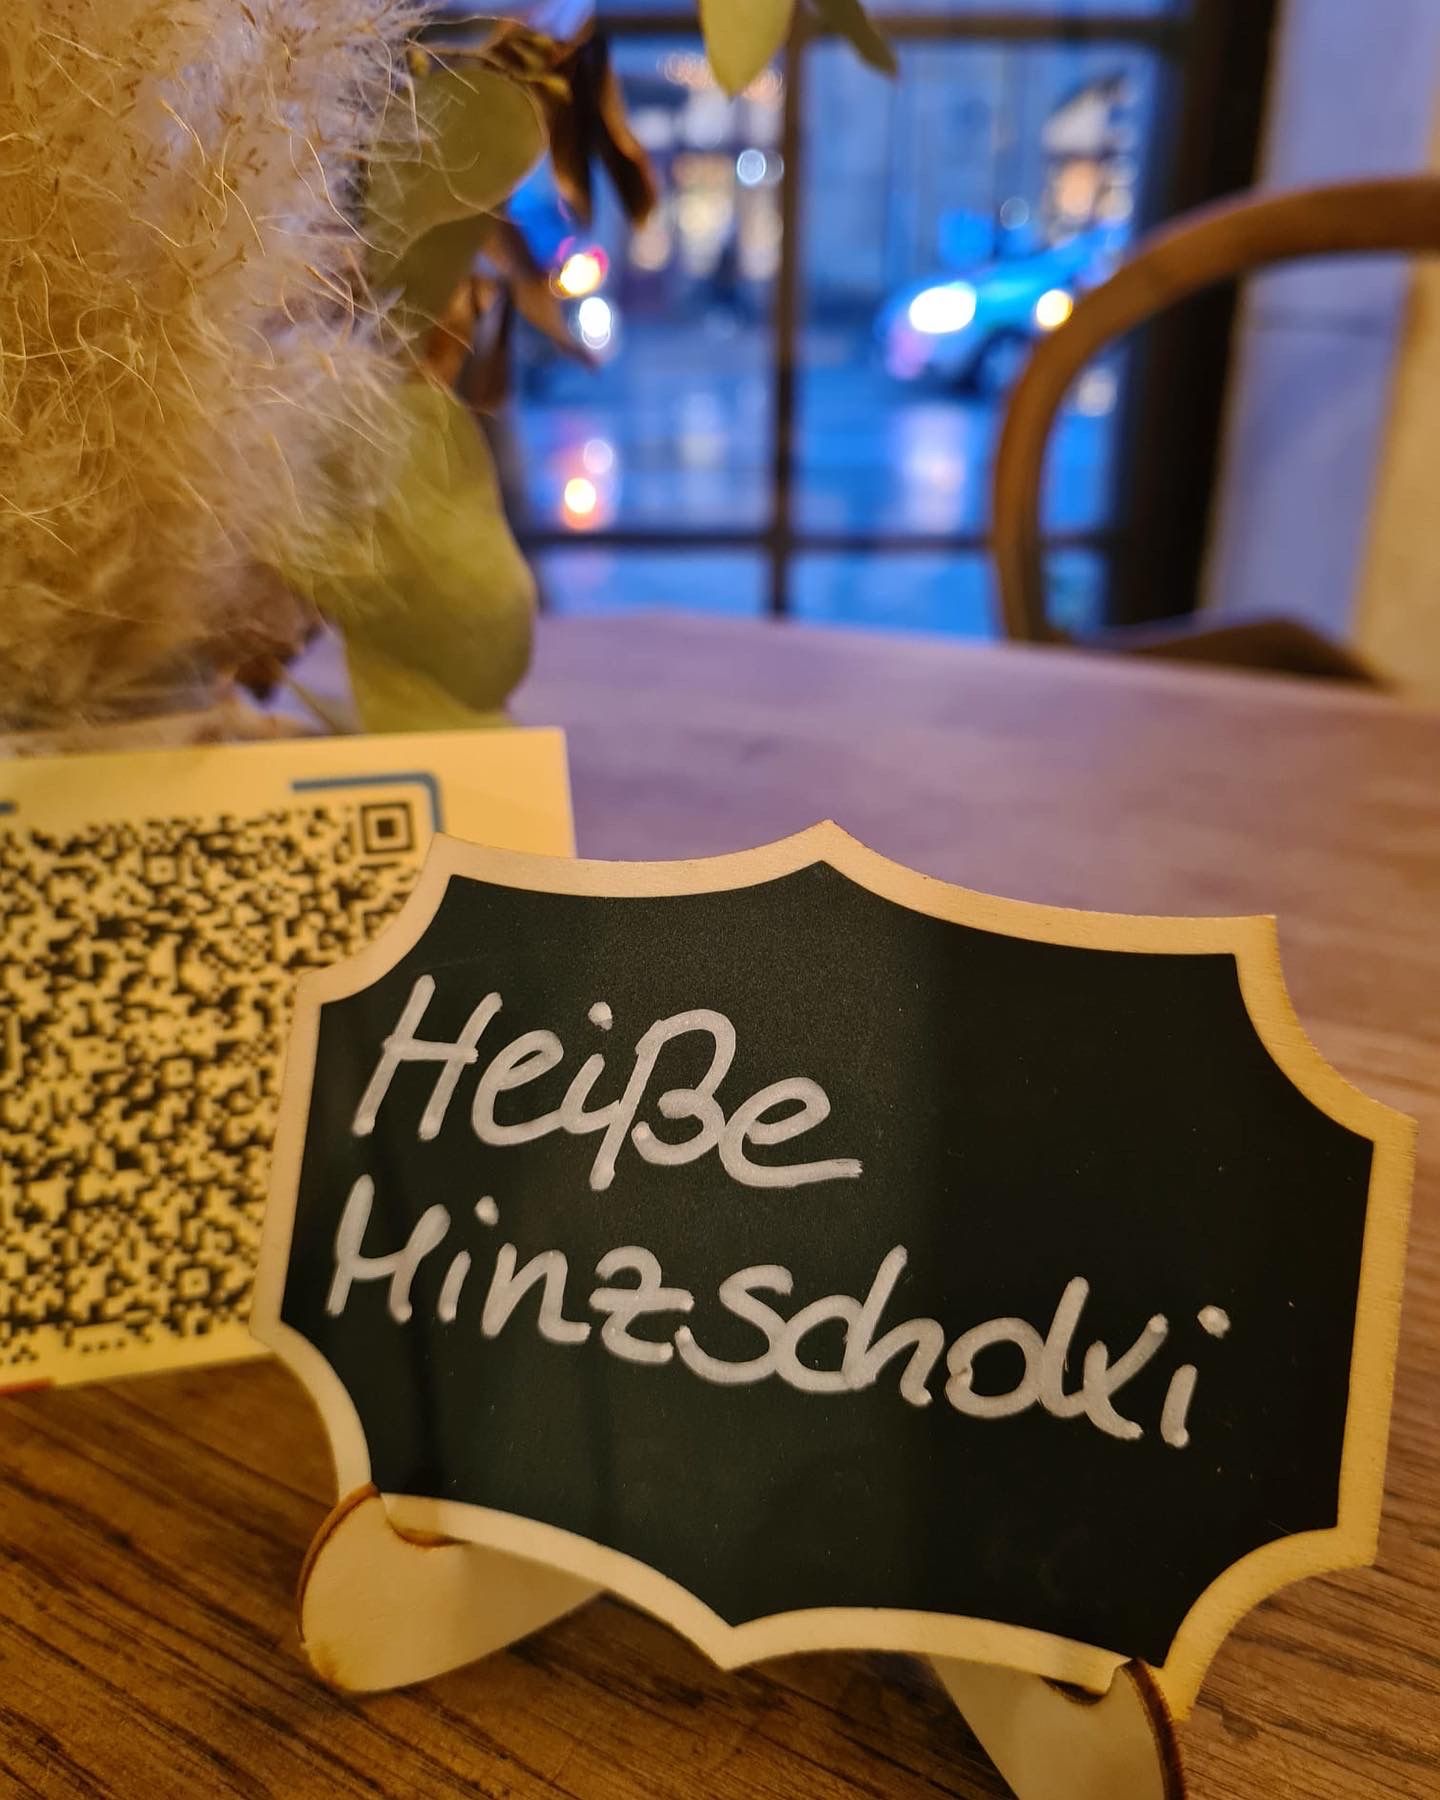 Heiße
Minzschoki